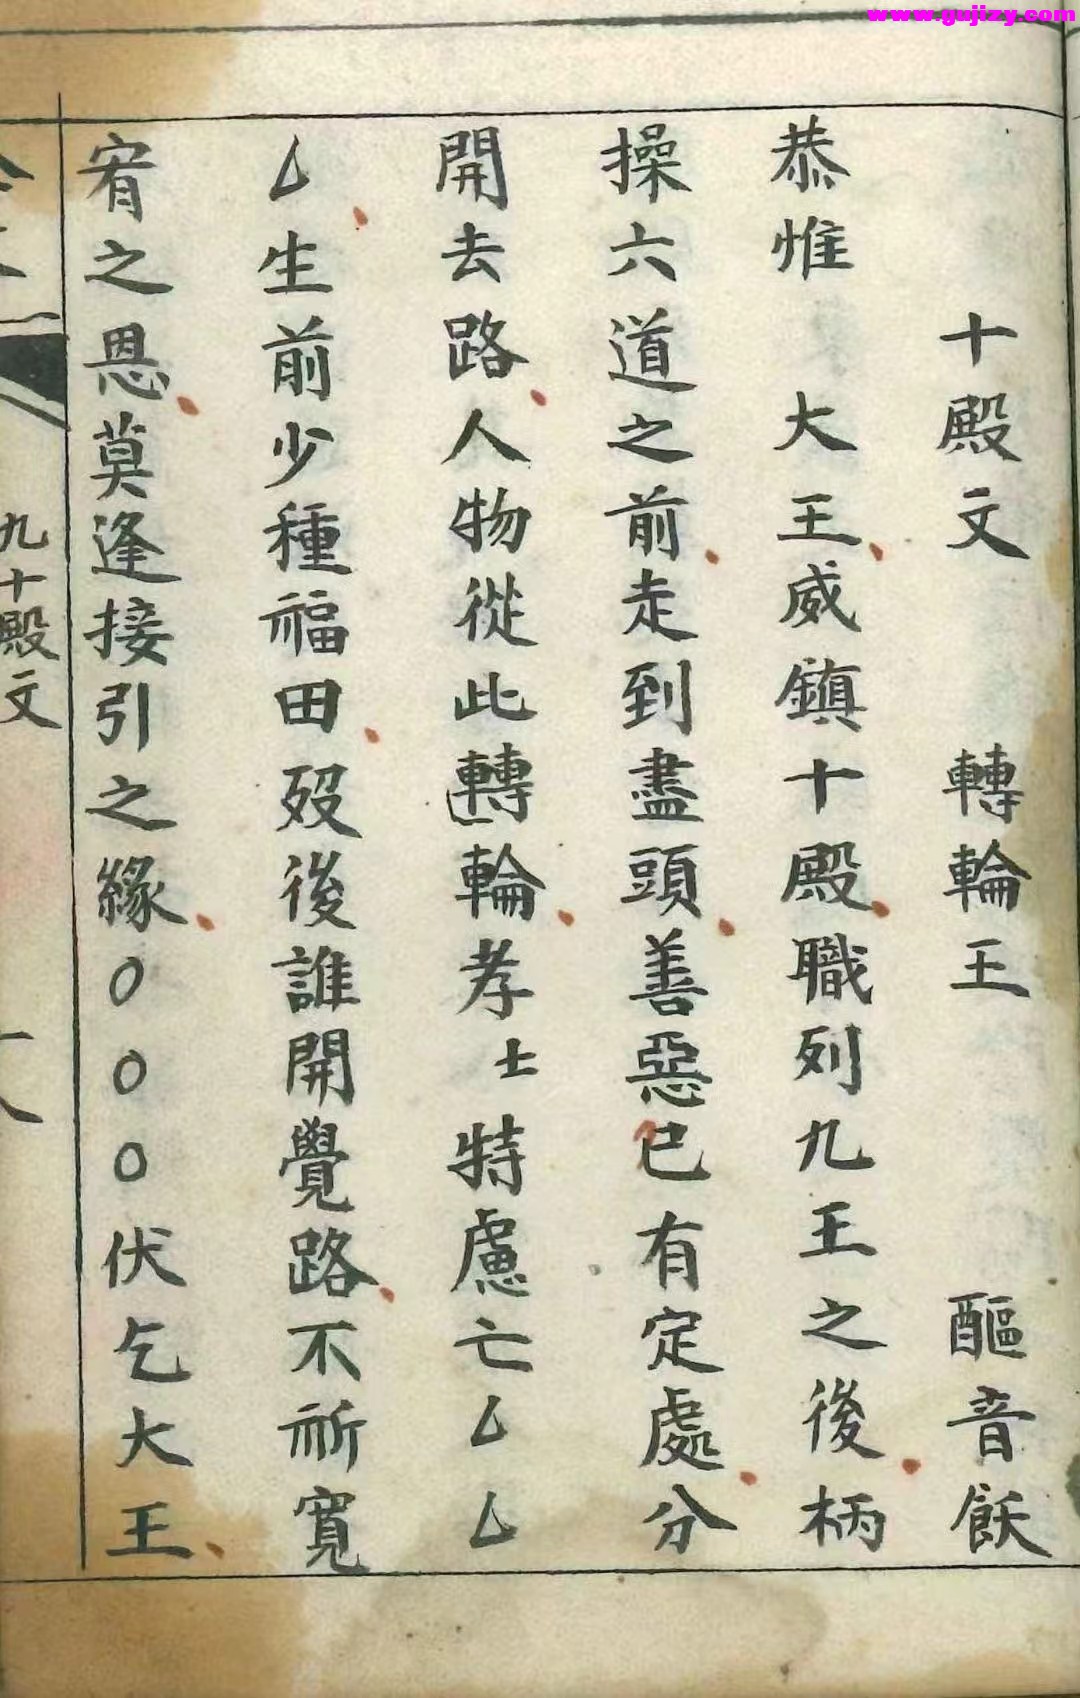 www.gujizy.com
十殿文 轉輪王 醧音飫
恭惟 大王威鎮十殿職列九王之後柄
操六道之前走到盡頭善惡已有定處分
開去路人物從此轉輪孝士特慮亡厶厶
厶生前少種福田歿後誰開覺路不祈寬
宥之恩莫逢接引之緣〇〇〇伏乞大王
九十殿文